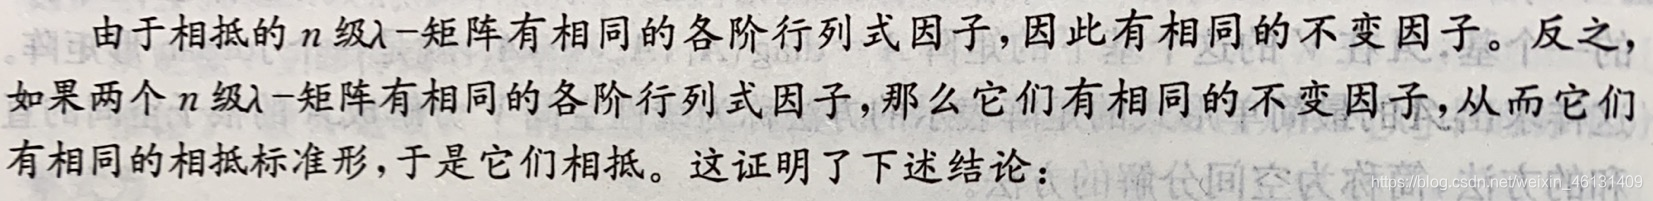 由于相抵的 n 级λ-矩阵有相同的各阶行列式因子,因此有相同的不变因子。反之,
如果两个 n 级λ-矩阵有相同的各阶行列式因子,那么它们有相同的不变因子,从而它们
有相同的相抵标准形,于是它们相抵。这证明了下述结论:
https://blog.csdn.net/weixin_46131409